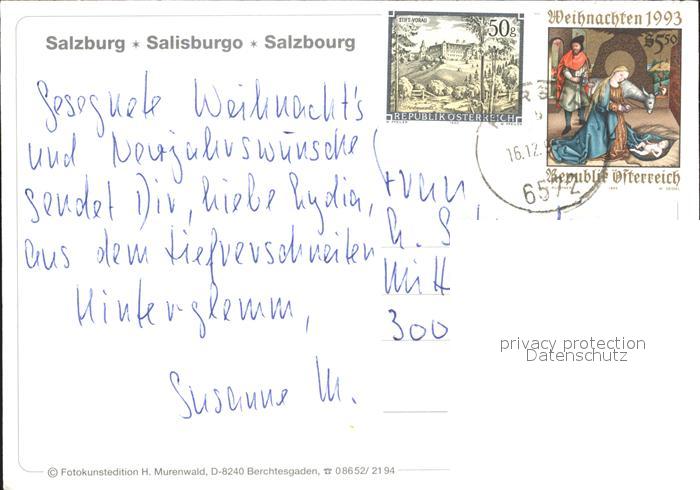 Salzburg ✶ Salisburgo ✶ Salzbourg
STIFT VORAU
50g
REPUBLIK ÖSTERREICH
Weihnachten 1993
S 5.50
Republik Österreich
16.12.
Gesegnete Weihnacht's
und Neujahrswünsche
sendet Dir, liebe Lydia,
aus dem tiefverschneiten
Hinterglemm,
Susanne M.
Frau
L. S
Mitt
300
privacy protection
Datenschutz
© Fotokunstedition H. Murenwald, D-8240 Berchtesgaden, ☎ 08652/ 2194